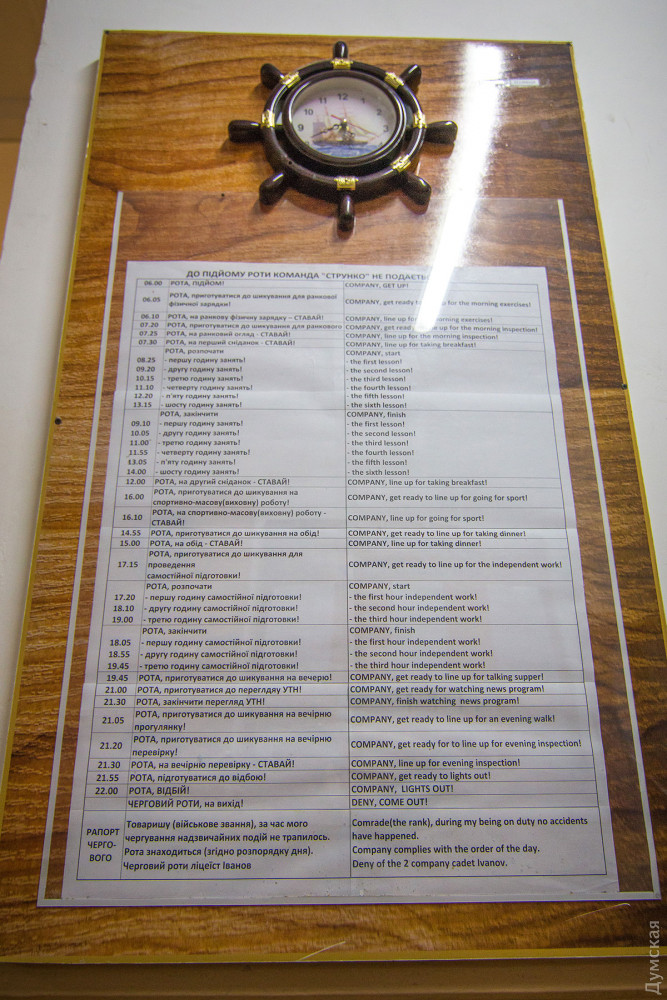 12
ДО ПІДЙОМУ РОТИ КОМАНДА "СТРУНКО" НЕ ПОДАЄТЬСЯ
06.00 РОТА, ПІДЙОМ! COMPANY, GET UP!
06.05 РОТА, приготуватися до шикування для ранкової
фізичної зарядки! COMPANY, get ready to line up for the morning exercises!
06.10 РОТА, на ранкову фізичну зарядку – СТАВАЙ! COMPANY, line up for the morning exercises!
07.20 РОТА, приготуватися до шикування для ранкового COMPANY, get ready to line up for the morning inspection!
07.25 РОТА, на ранковий огляд - СТАВАЙ! COMPANY, line up for the morning inspection!
07.30 РОТА, на перший сніданок - СТАВАЙ! COMPANY, line up for taking breakfast!
РОТА, розпочати COMPANY, start
08.25 - першу годину занять! - the first lesson!
09.20 - другу годину занять! - the second lesson!
10.15 - третю годину занять! - the third lesson!
11.10 - четверту годину занять! - the fourth lesson!
12.20 - п'яту годину занять! - the fifth lesson!
13.15 - шосту годину занять! - the sixth lesson!
РОТА, закінчити COMPANY, finish
09.10 - першу годину занять! - the first lesson!
10.05 - другу годину занять! - the second lesson!
11.00 - третю годину занять! - the third lesson!
11.55 - четверту годину занять! - the fourth lesson!
13.05 - п'яту годину занять! - the fifth lesson!
14.00 - шосту годину занять! - the sixth lesson!
12.00 РОТА, на другий сніданок - СТАВАЙ! COMPANY, line up for taking breakfast!
16.00 РОТА, приготуватися до шикування на
спортивно-масову(виховну) роботу! COMPANY, get ready to line up for going for sport!
16.10 РОТА, на спортивно-масову(виховну) роботу -
СТАВАЙ! COMPANY, line up for going for sport!
14.55 РОТА, приготуватися до шикування на обід! COMPANY, get ready to line up for taking dinner!
15.00 РОТА, на обід - СТАВАЙ! COMPANY, line up for taking dinner!
17.15 РОТА, приготуватися до шикування для
проведення
самостійної підготовки! COMPANY, get ready to line up for the independent work!
РОТА, розпочати COMPANY, start
17.20 - першу годину самостійної підготовки! - the first hour independent work!
18.10 - другу годину самостійної підготовки! - the second hour independent work!
19.00 - третю годину самостійної підготовки! - the third hour independent work!
РОТА, закінчити COMPANY, finish
18.05 - першу годину самостійної підготовки! - the first hour independent work!
18.55 - другу годину самостійної підготовки! - the second hour independent work!
19.45 - третю годину самостійної підготовки! - the third hour independent work!
19.45 РОТА, приготуватися до шикування на вечерю! COMPANY, get ready to line up for talking supper!
21.00 РОТА, приготуватися до перегляду УТН! COMPANY, get ready for watching news program!
21.30 РОТА, закінчити перегляд УТН! COMPANY, finish watching news program!
21.05 РОТА, приготуватися до шикування на вечірню
прогулянку! COMPANY, get ready to line up for an evening walk!
21.20 РОТА, приготуватися до шикування на вечірню
перевірку! COMPANY, get ready for to line up for evening inspection!
21.30 РОТА, на вечірню перевірку - СТАВАЙ! COMPANY, line up for evening inspection!
21.55 РОТА, підготуватися до відбою! COMPANY, get ready to lights out!
22.00 РОТА, ВІДБІЙ! COMPANY, LIGHTS OUT!
ЧЕРГОВИЙ РОТИ, на вихід! DENY, COME OUT!
РАПОРТ
ЧЕРГО-
ВОГО
Товаришу (військове звання), за час мого
чергування надзвичайних подій не трапилось.
Рота знаходиться (згідно розпорядку дня).
Черговий роти ліцеїст Іванов
Comrade(the rank), during my being on duty no accidents
have happened.
Company complies with the order of the day.
Deny of the 2 company cadet Ivanov.
Думская